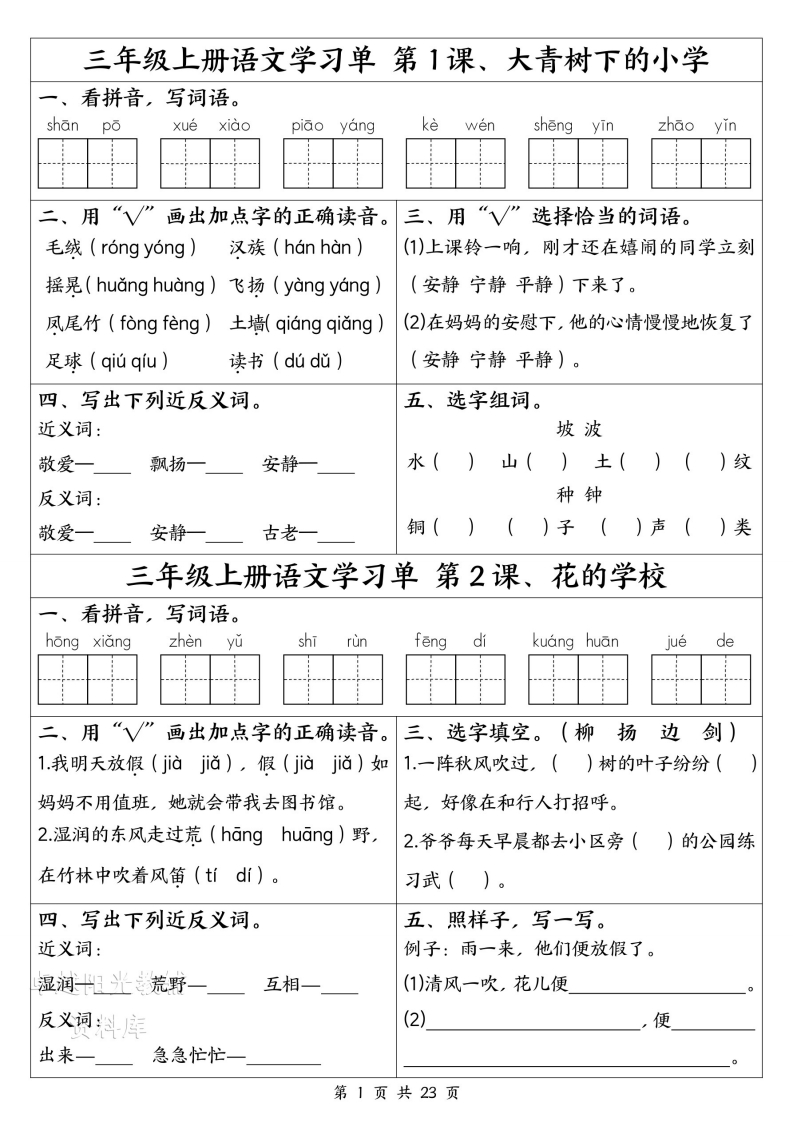 三年级上册语文学习单 第1课、大青树下的小学
一、看拼音，写词语。
shān pō xué xiào piāo yáng kè wén shēng yīn zhāo yǐn
二、用“√”画出加点字的正确读音。
毛绒（róng yóng） 汉族（hán hàn）
摇晃（huǎng huàng） 飞扬（yàng yáng）
凤尾竹（fòng fèng） 土墙（qiáng qiǎng）
足球（qiú qíu） 读书（dú dǔ）
三、用“√”选择恰当的词语。
(1)上课铃一响，刚才还在嬉闹的同学立刻
（安静 宁静 平静）下来了。
(2)在妈妈的安慰下，他的心情慢慢地恢复了
（安静 宁静 平静）。
四、写出下列近反义词。
近义词：
敬爱—____ 飘扬—____ 安静—____
反义词：
敬爱—____ 安静—____ 古老—____
五、选字组词。
坡 波
水（ ） 山（ ） 土（ ） （ ）纹
种 钟
铜（ ） （ ）子 （ ）声 （ ）类
三年级上册语文学习单 第2课、花的学校
一、看拼音，写词语。
hōng xiǎng zhèn yǔ shī rùn fēng dí kuáng huān jué de
二、用“√”画出加点字的正确读音。
1.我明天放假（jià jiǎ），假（jià jiǎ）如
妈妈不用值班，她就会带我去图书馆。
2.湿润的东风走过荒（hāng huāng）野，
在竹林中吹着风笛（tí dí）。
三、选字填空。（柳 扬 边 剑）
1.一阵秋风吹过，（ ）树的叶子纷纷（ ）
起，好像在和行人打招呼。
2.爷爷每天早晨都去小区旁（ ）的公园练
习武（ ）。
四、写出下列近反义词。
近义词：
湿润—____ 荒野—____ 互相—____
反义词：
出来—____ 急急忙忙—________
五、照样子，写一写。
例子：雨一来，他们便放假了。
(1)清风一吹，花儿便___________________。
(2)_______________________，便_________
___________________________________。
第 1 页 共 23 页